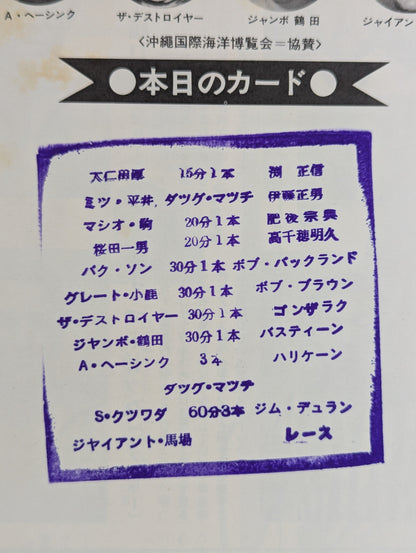 A・ヘーシンク ザ・デストロイヤー ジャンボ鶴田 ジャイアン
〈沖縄国際海洋博覧会=協賛〉
●本日のカード●
大仁田厚 15分1本 渕正信
ミツ・平井 ダツグ・マツチ 伊藤正男
マシオ・駒 20分1本 肥後宗典
桜田一男 20分1本 高千穂明久
パク・ソン 30分1本 ボブ・バックランド
グレート・小鹿 30分1本 ボブ・ブラウン
ザ・デストロイヤー 30分1本 ゴンザラク
ジャンボ・鶴田 30分1本 バスティーン
A・ヘーシンク 3本 ハリケーン
ダツグ・マツチ
S・クツワダ 60分3本 ジム・デュラン
ジヤイアント・馬場 レース